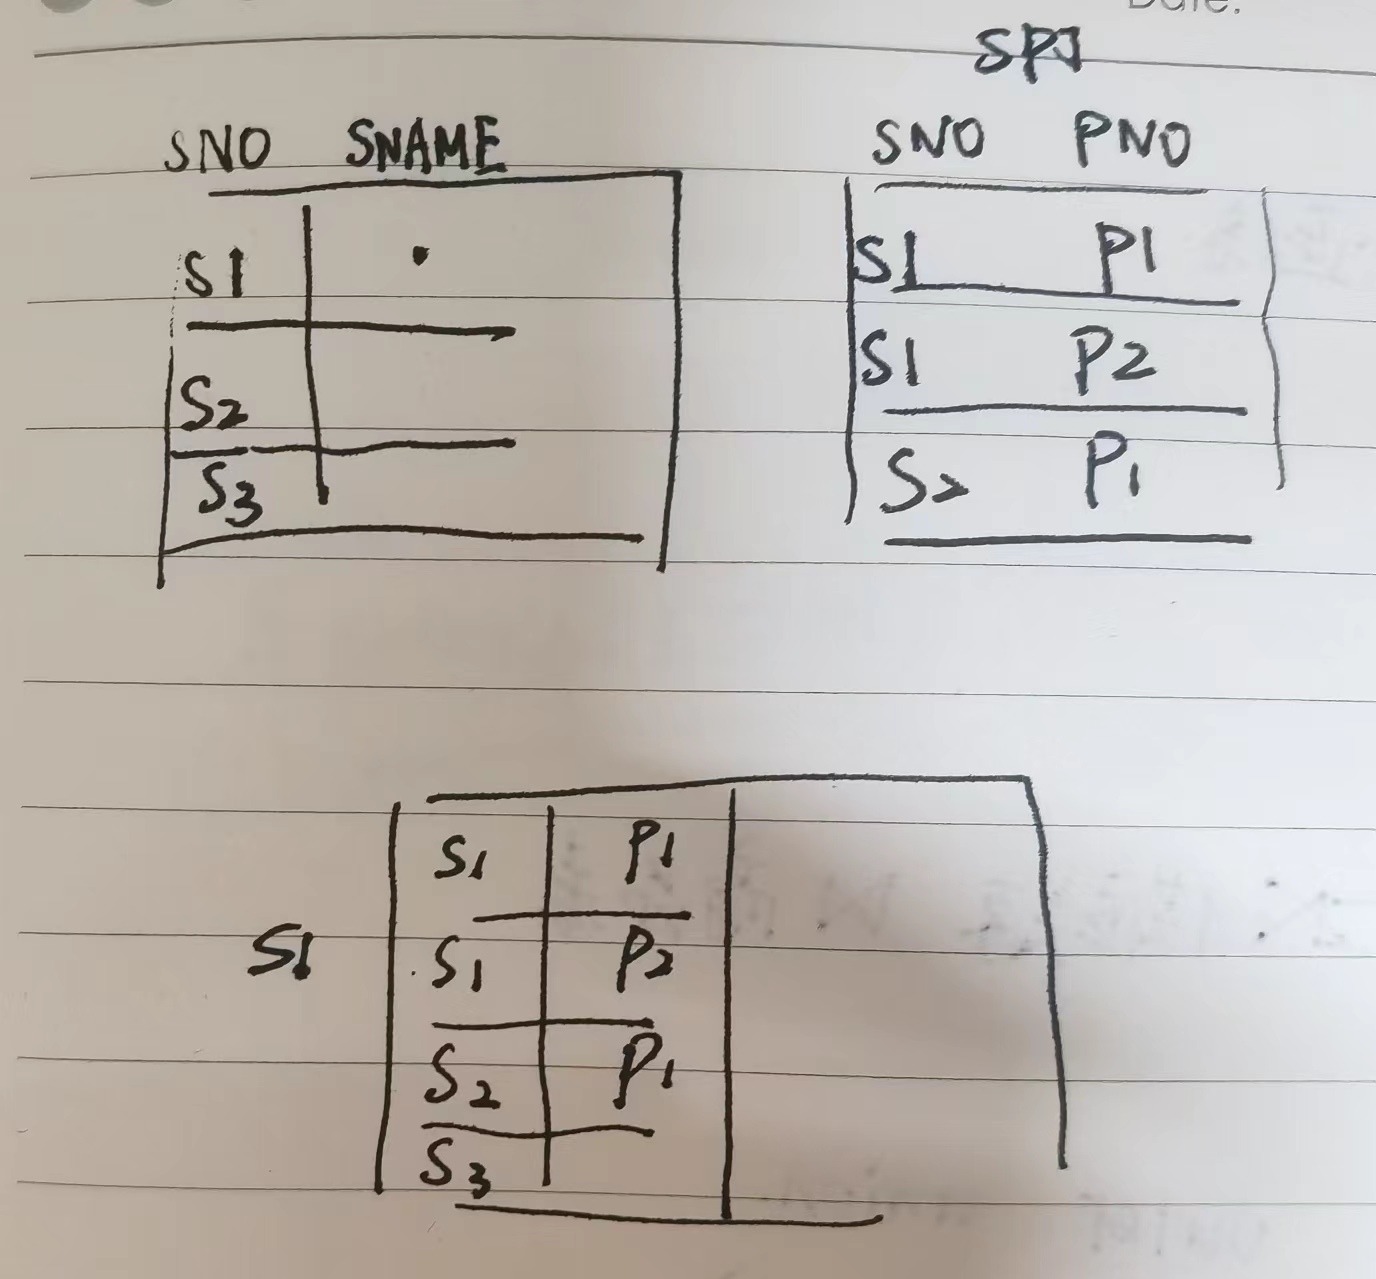 Date:
SPJ
SNO SNAME
S1
S2
S3
SNO PNO
S1 P1
S1 P2
S2 P1
S1
S1 P1
S1 P2
S2 P1
S3